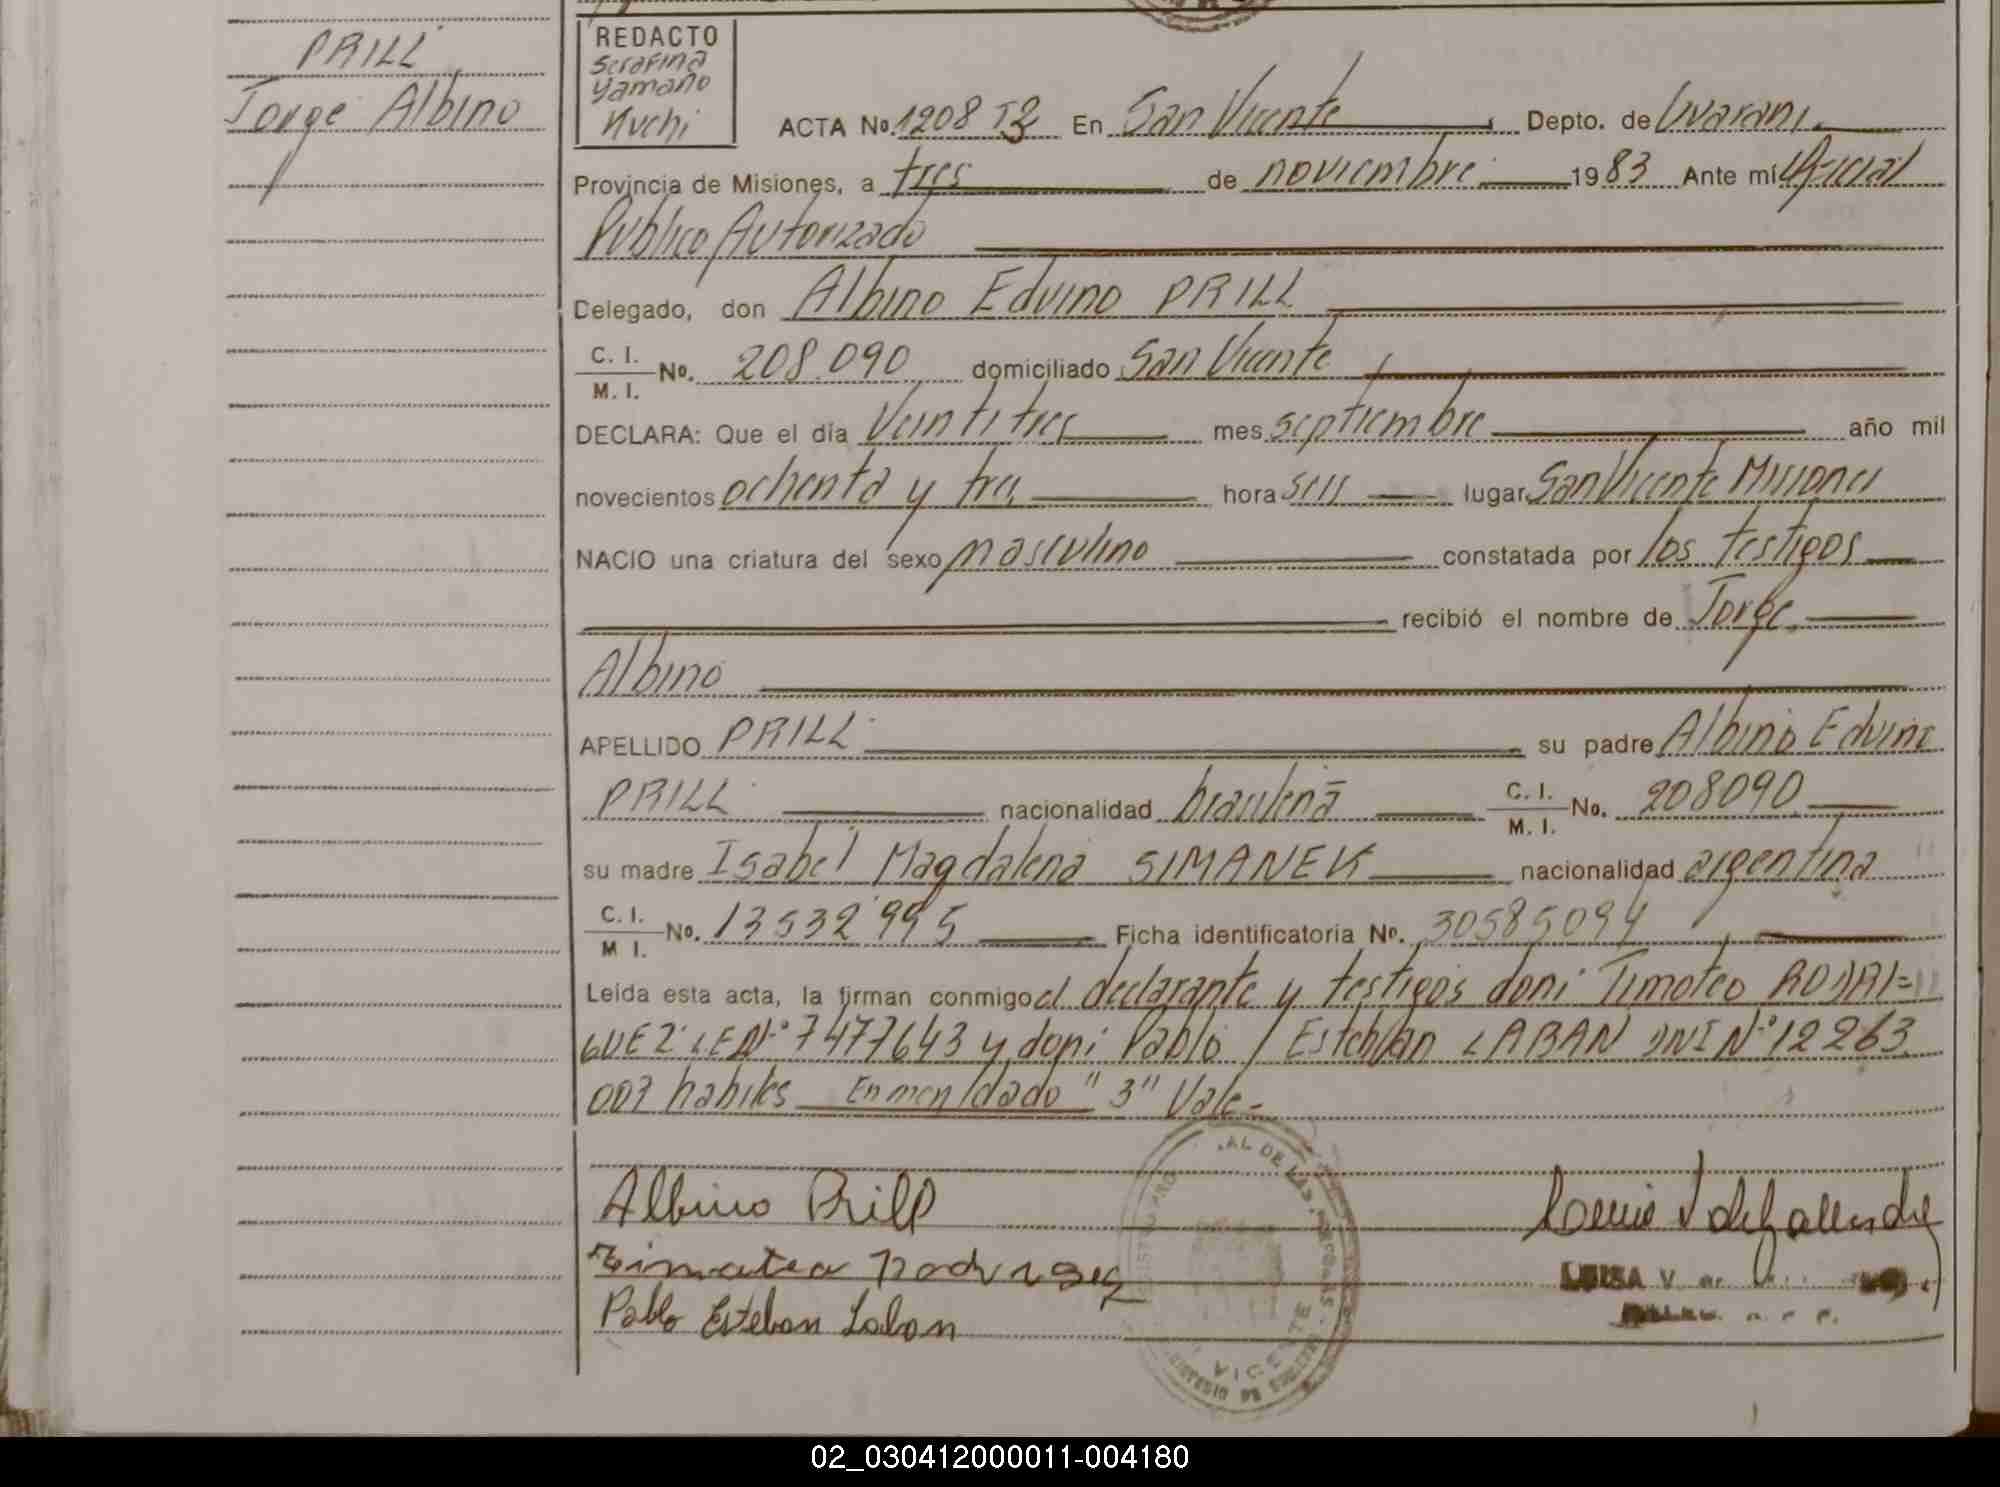 PRILL
Jorge Albino
REDACTO
Serafina
Yamaño
Kuchi
ACTA No. 1208 T2 En San Vicente Depto. de Guarani
Provincia de Misiones, a tres de noviembre 1983 Ante mí Oficial
Publico Autorizado
Delegado, don Albino Edvino PRILL
C. I. M. I. No. 208.090 domiciliado San Vicente
DECLARA: Que el día Veintitres mes septiembre año mil
novecientos ochenta y tres hora seis lugar San Vicente Misiones
NACIO una criatura del sexo masculino constatada por los testigos
recibió el nombre de Jorge
Albino
APELLIDO PRILL su padre Albino Edvino
PRILL nacionalidad brasileña C. I. M. I. No. 208090
su madre Isabel Magdalena SIMANEK nacionalidad argentina
C. I. M I. No. 13532995 Ficha identificatoria No. 30585094
Leida esta acta, la firman conmigo el declarante y testigos don: Timoteo RODRI=
GUEZ LE Nº 7477643 y don: Pablo Esteban LABAN DNI Nº 12263
007 habiles Enmendado "3" Vale-
Albino Prill
Timoteo Rodriguez
Pablo Esteban Laban
LUISA V.
02_030412000011-004180